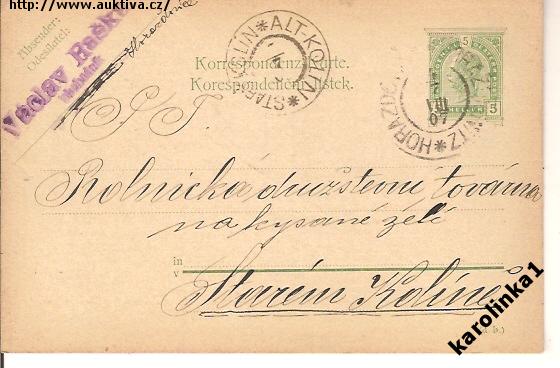 http://www.auktiva.cz/
Absender:
Odesílatel:
Václav Rašk
Horazdovice
Korrespondenz-Karte.
Korespondenční lístek.
STARÝ KOLÍN * ALT-KOLIN *
HORAŽĎO
WITZ * HORAZD
III
07
5
5
P. T.
Rolnická družstevní továrna
na kysané zelí
in
v
Starém Kolíně
(b.)
karolinka1